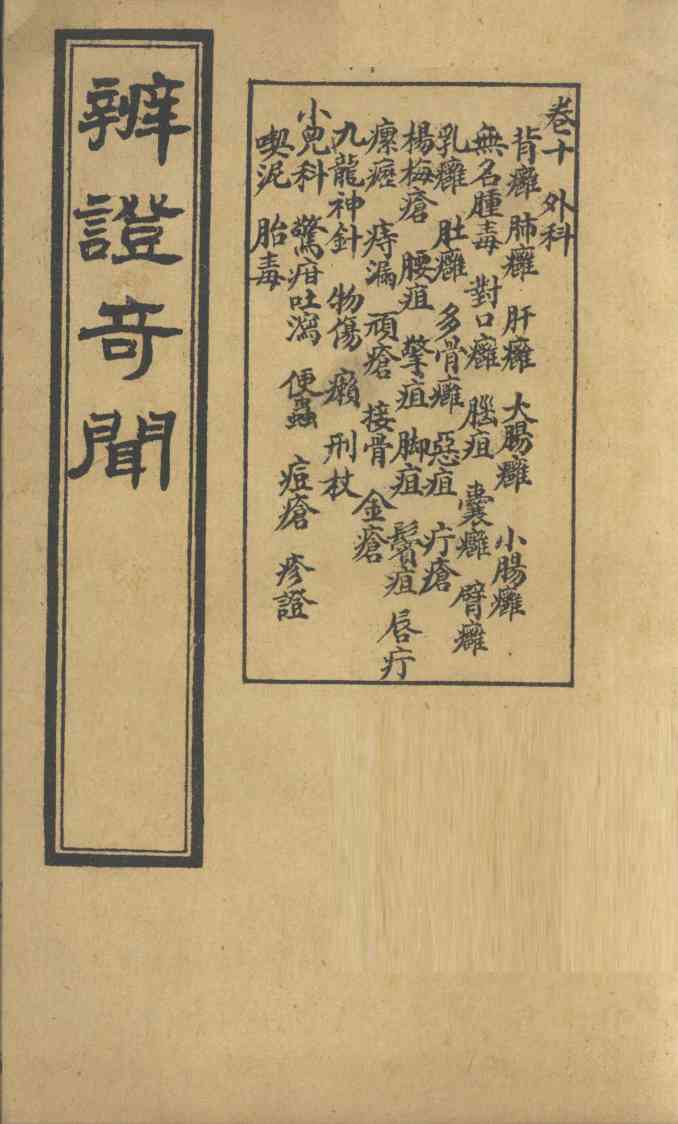 卷十 外科
背癰 肺癰 肝癰 大腸癰 小腸癰
無名腫毒 對口癰 腦疽 囊癰 臂癰
乳癰 肚癰 多骨癰 惡疽 疔瘡
楊梅瘡 腰疽 擎疽 脚疽 鬢疽 唇疔
瘰癧 痔漏 頑瘡 接骨 金瘡
九龍神針 物傷 癩 刑杖
小兒科 驚疳吐瀉 便蟲 痘瘡 疹證
喫泥 胎毒
辨證奇聞